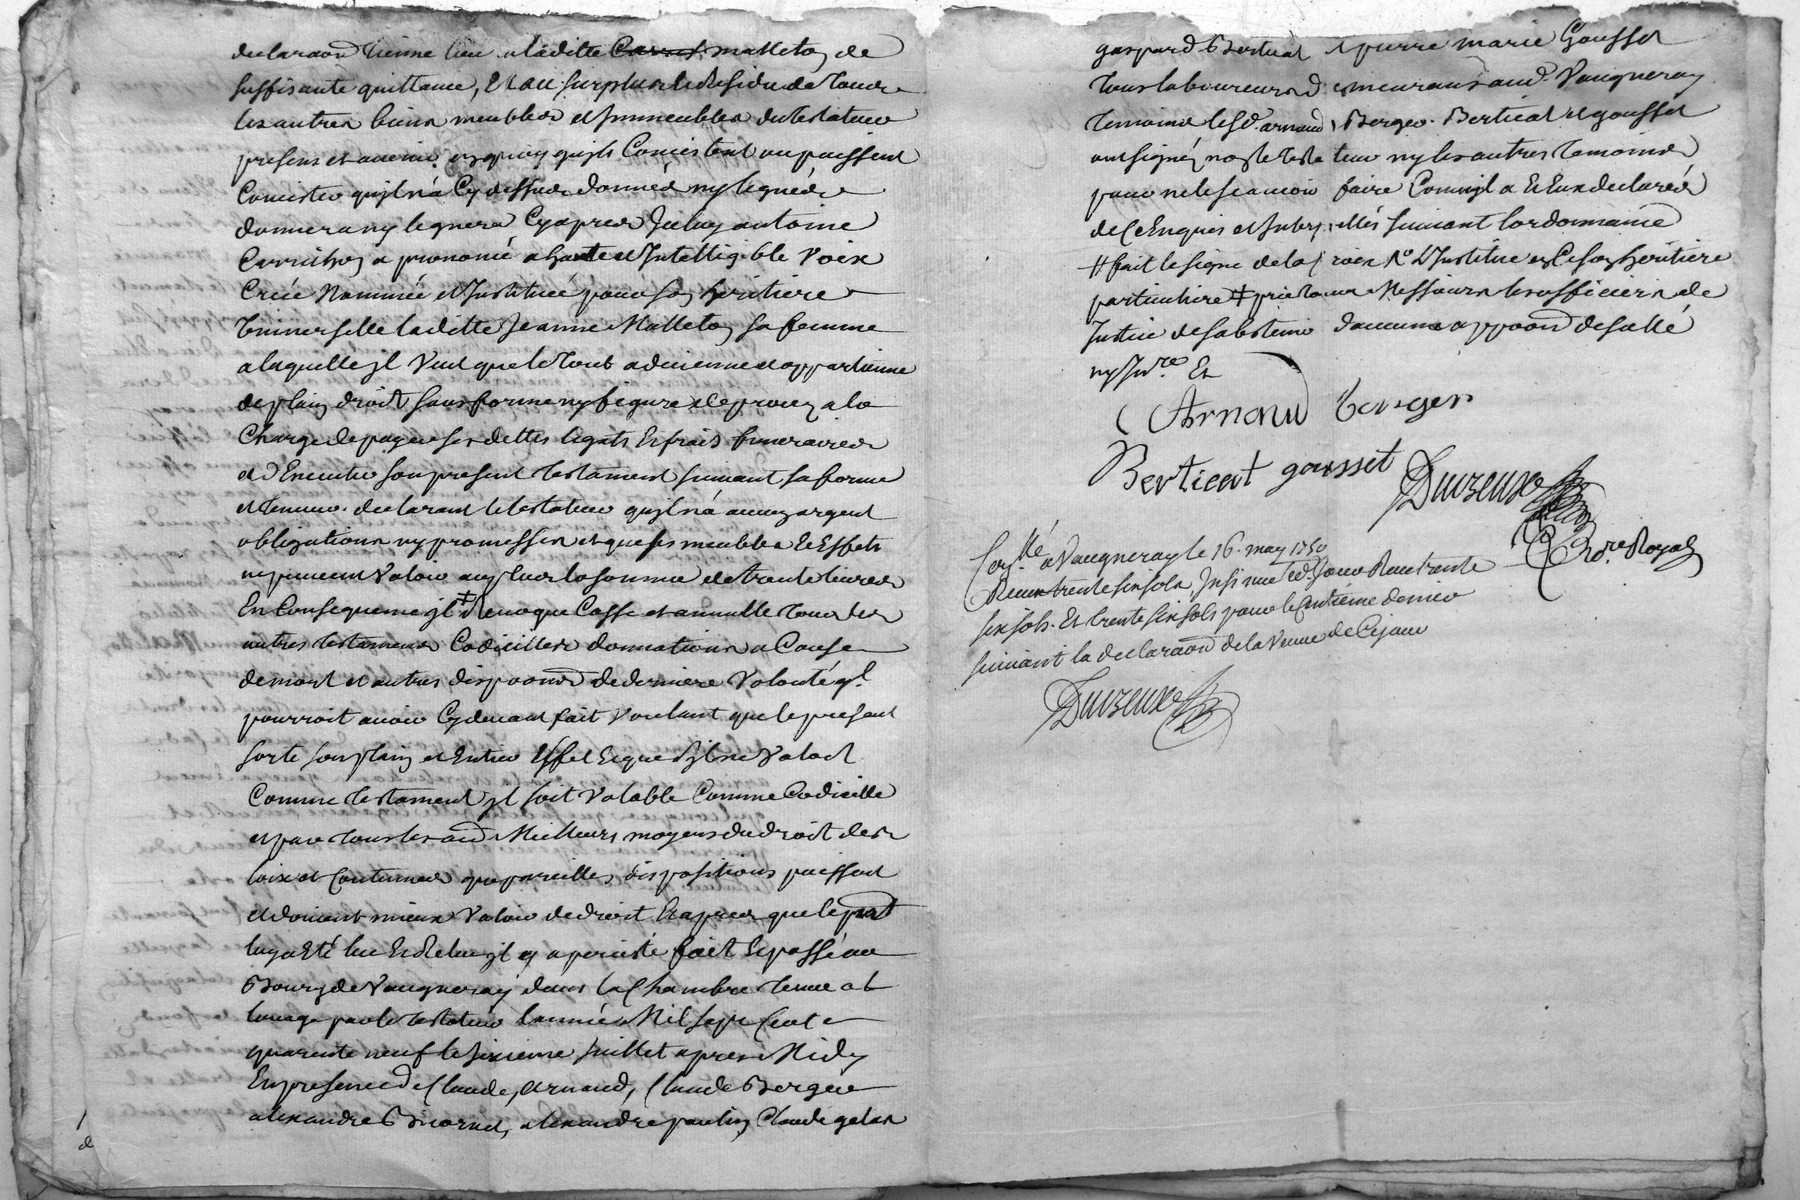 declaraōn tienne lieu a laditte Carret matteton de
suffisante quittance, Et au surplus le Residu de tous
les autres biens meubles et Immeubles du testateur
presens et avenir, en quoy qu'ils Consistent ou puissent
Consister qu'il n'a Cydessus donnés ny legués
donnera ny leguera Cyapres Iceluy antoine
a prononcé a haute et Intelligible Voix
Créé Nommée et Instituée pour son heritiere
Universelle laditte Jeanne Matteton sa femme
a laquelle jl Veut que le tout advienne et appartienne
de plain droit sans forme ny figure de proces a la
Charge de payer ses dettes legats Et frais funeraires
et d'Executer son present testament suivant sa forme
et teneur. declarant le testateur qu'jl n'a aucun argent
obligations ny promesses et que ses meubles Et Effets
ne peuvent Valoir que la somme de trente livres
En Consequence jl ‡ Revoque Casse et annulle tous les
autres testamens Codicilles donnations a Cause
de mort et autres dispoōns de derniere Volonté qjl
pourroit avoir Cydevant fait Voulant que le present
sorte son plain et Entier Effet Et que s'jl ne Valoit
Comme testament jl soit Valable Comme Codicille
et par tous les aūd Meilleurs moyens du droit des
loix et Coutumes que pareilles dispositions puissent
et doivent mieux Valoir de droit Et apres que le pnt
luy a Eté lu Et Relu jl y a persisté fait Et passé au
Bourg de Vaugneray dans la Chambre tenue a
louage par le testateur l'année Mil sept Cent
quarante neuf le sixieme Juillet apres Midy
En presence de Claude, arnaud, Claude Berger
alexandre Bicornet, alexandre paulin, Claude gelas
gaspard Bertieat et pierre marie Gousset
tous laboureurs demeurans aud. Vaugneray
temoins lesd. arnaud, Berger. Bertieat et gousset
ont signé, non le testateur ny les autres temoins
pour ne le scavoir faire Comme jl a Et Eux declarés
de Ce Enquis et Interpellés suivant l'ordonnance
‡ fait le signe de la Croix Rº d'Institue en Ce son heritiere
particuliere ‡ prie tous Messieurs les officiers de
Justice de s'abstenir d'aucune appoōn de scellé
ny Inv.re Et
Arnaud Berger
Bertieat gousset
Duvzeux
No.re Royal
Con.llé a Vaugneray le 16. may 1750
Receu trente six sols, Insinué led. Jour Receu trente
six sols. Et trente six sols pour le Centieme denier
suivant la declaraōn de la Veuve de Cejour
Duvzeux